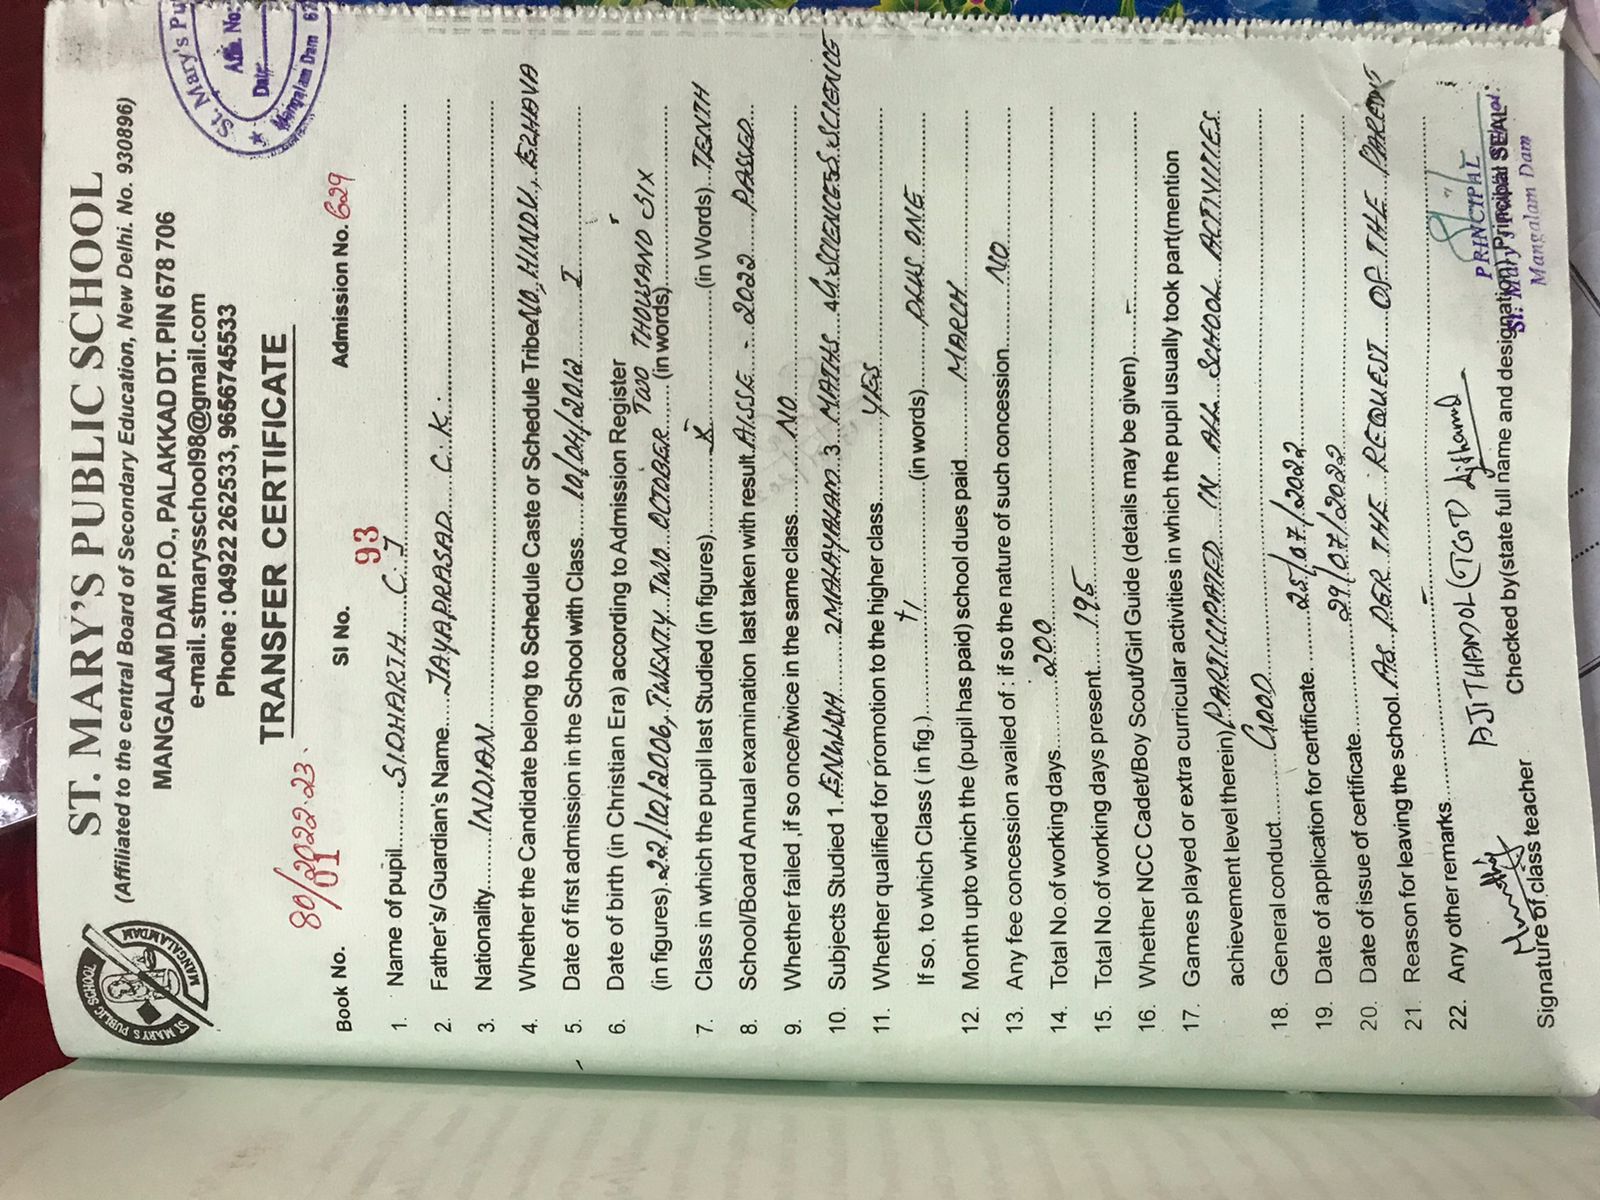 ST. MARY'S PUBLIC SCHOOL
(Affiliated to the central Board of Secondary Education, New Delhi. No. 930896)
MANGALAM DAM P.O., PALAKKAD DT. PIN 678 706
e-mail. stmarysschool98@gmail.com
Phone : 04922 262533, 9656745533
TRANSFER CERTIFICATE
ST. MARY'S PUBLIC SCHOOL
MANGALAMDAM
St. Mary's Pu
No:
Date
Mangalam Dam 67
80/2022-23
Book No. 01 Sl No. 93 Admission No. 629
1. Name of pupil SIDHARTH C.J
2. Father's/ Guardian's Name JAYAPRASAD C.K.
3. Nationality INDIAN
4. Whether the Candidate belong to Schedule Caste or Schedule Tribe NO, HINDU, EZHAVA
5. Date of first admission in the School with Class 10/04/2012 I
6. Date of birth (in Christian Era) according to Admission Register
(in figures) 22/10/2006, TWENTY TWO OCTOBER TWO THOUSAND SIX (in words)
7. Class in which the pupil last Studied (in figures) X (in Words) TENTH
8. School/Board Annual examination last taken with result AISSE - 2022 PASSED
9. Whether failed ,if so once/twice in the same class NO
10. Subjects Studied 1. ENGLISH 2 MALAYALAM 3 MATHS 4 SCIENCE S.SCIENCE
11. Whether qualified for promotion to the higher class YES
If so, to which Class ( in fig.) +1 (in words) PLUS ONE
12. Month upto which the (pupil has paid) school dues paid MARCH
13. Any fee concession availed of : if so the nature of such concession NO
14. Total No.of working days 200
15. Total No.of working days present 195
16. Whether NCC Cadet/Boy Scout/Girl Guide (details may be given) -
17. Games played or extra curricular activities in which the pupil usually took part(mention
achievement level therein) PARTICIPATED IN ALL SCHOOL ACTIVITIES
18. General conduct GOOD
19. Date of application for certificate 25/07/2022
20. Date of issue of certificate 29/07/2022
21. Reason for leaving the school AS PER THE REQUEST OF THE PARENT
22. Any other remarks -
AJITHAMOL (TGT)
Signature of class teacher Checked by(state full name and designation) Principal SEAL
PRINCIPAL
St. Mary's Public School
Mangalam Dam